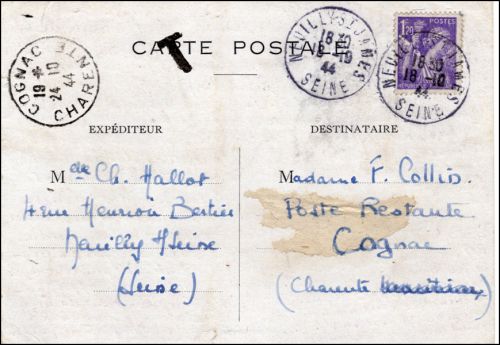 CARTE POSTALE
T
NEUILLY-S-T JAMES
18 30
18-10
44
SEINE
1,20
NEUILLY-S-T JAMES
18 30
18-10
44
SEINE
COGNAC
19 *
24 10
44
CHARENTE
EXPÉDITEUR
DESTINATAIRE
Mde Ch. Hallot
Madame F. Collin.
Neuilly s/Seine
Poste Restante
(Seine)
Cognac
(Charente